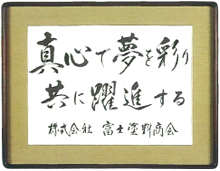 真心で夢を彩り
共に躍進する
株式会社 富士塗料商会